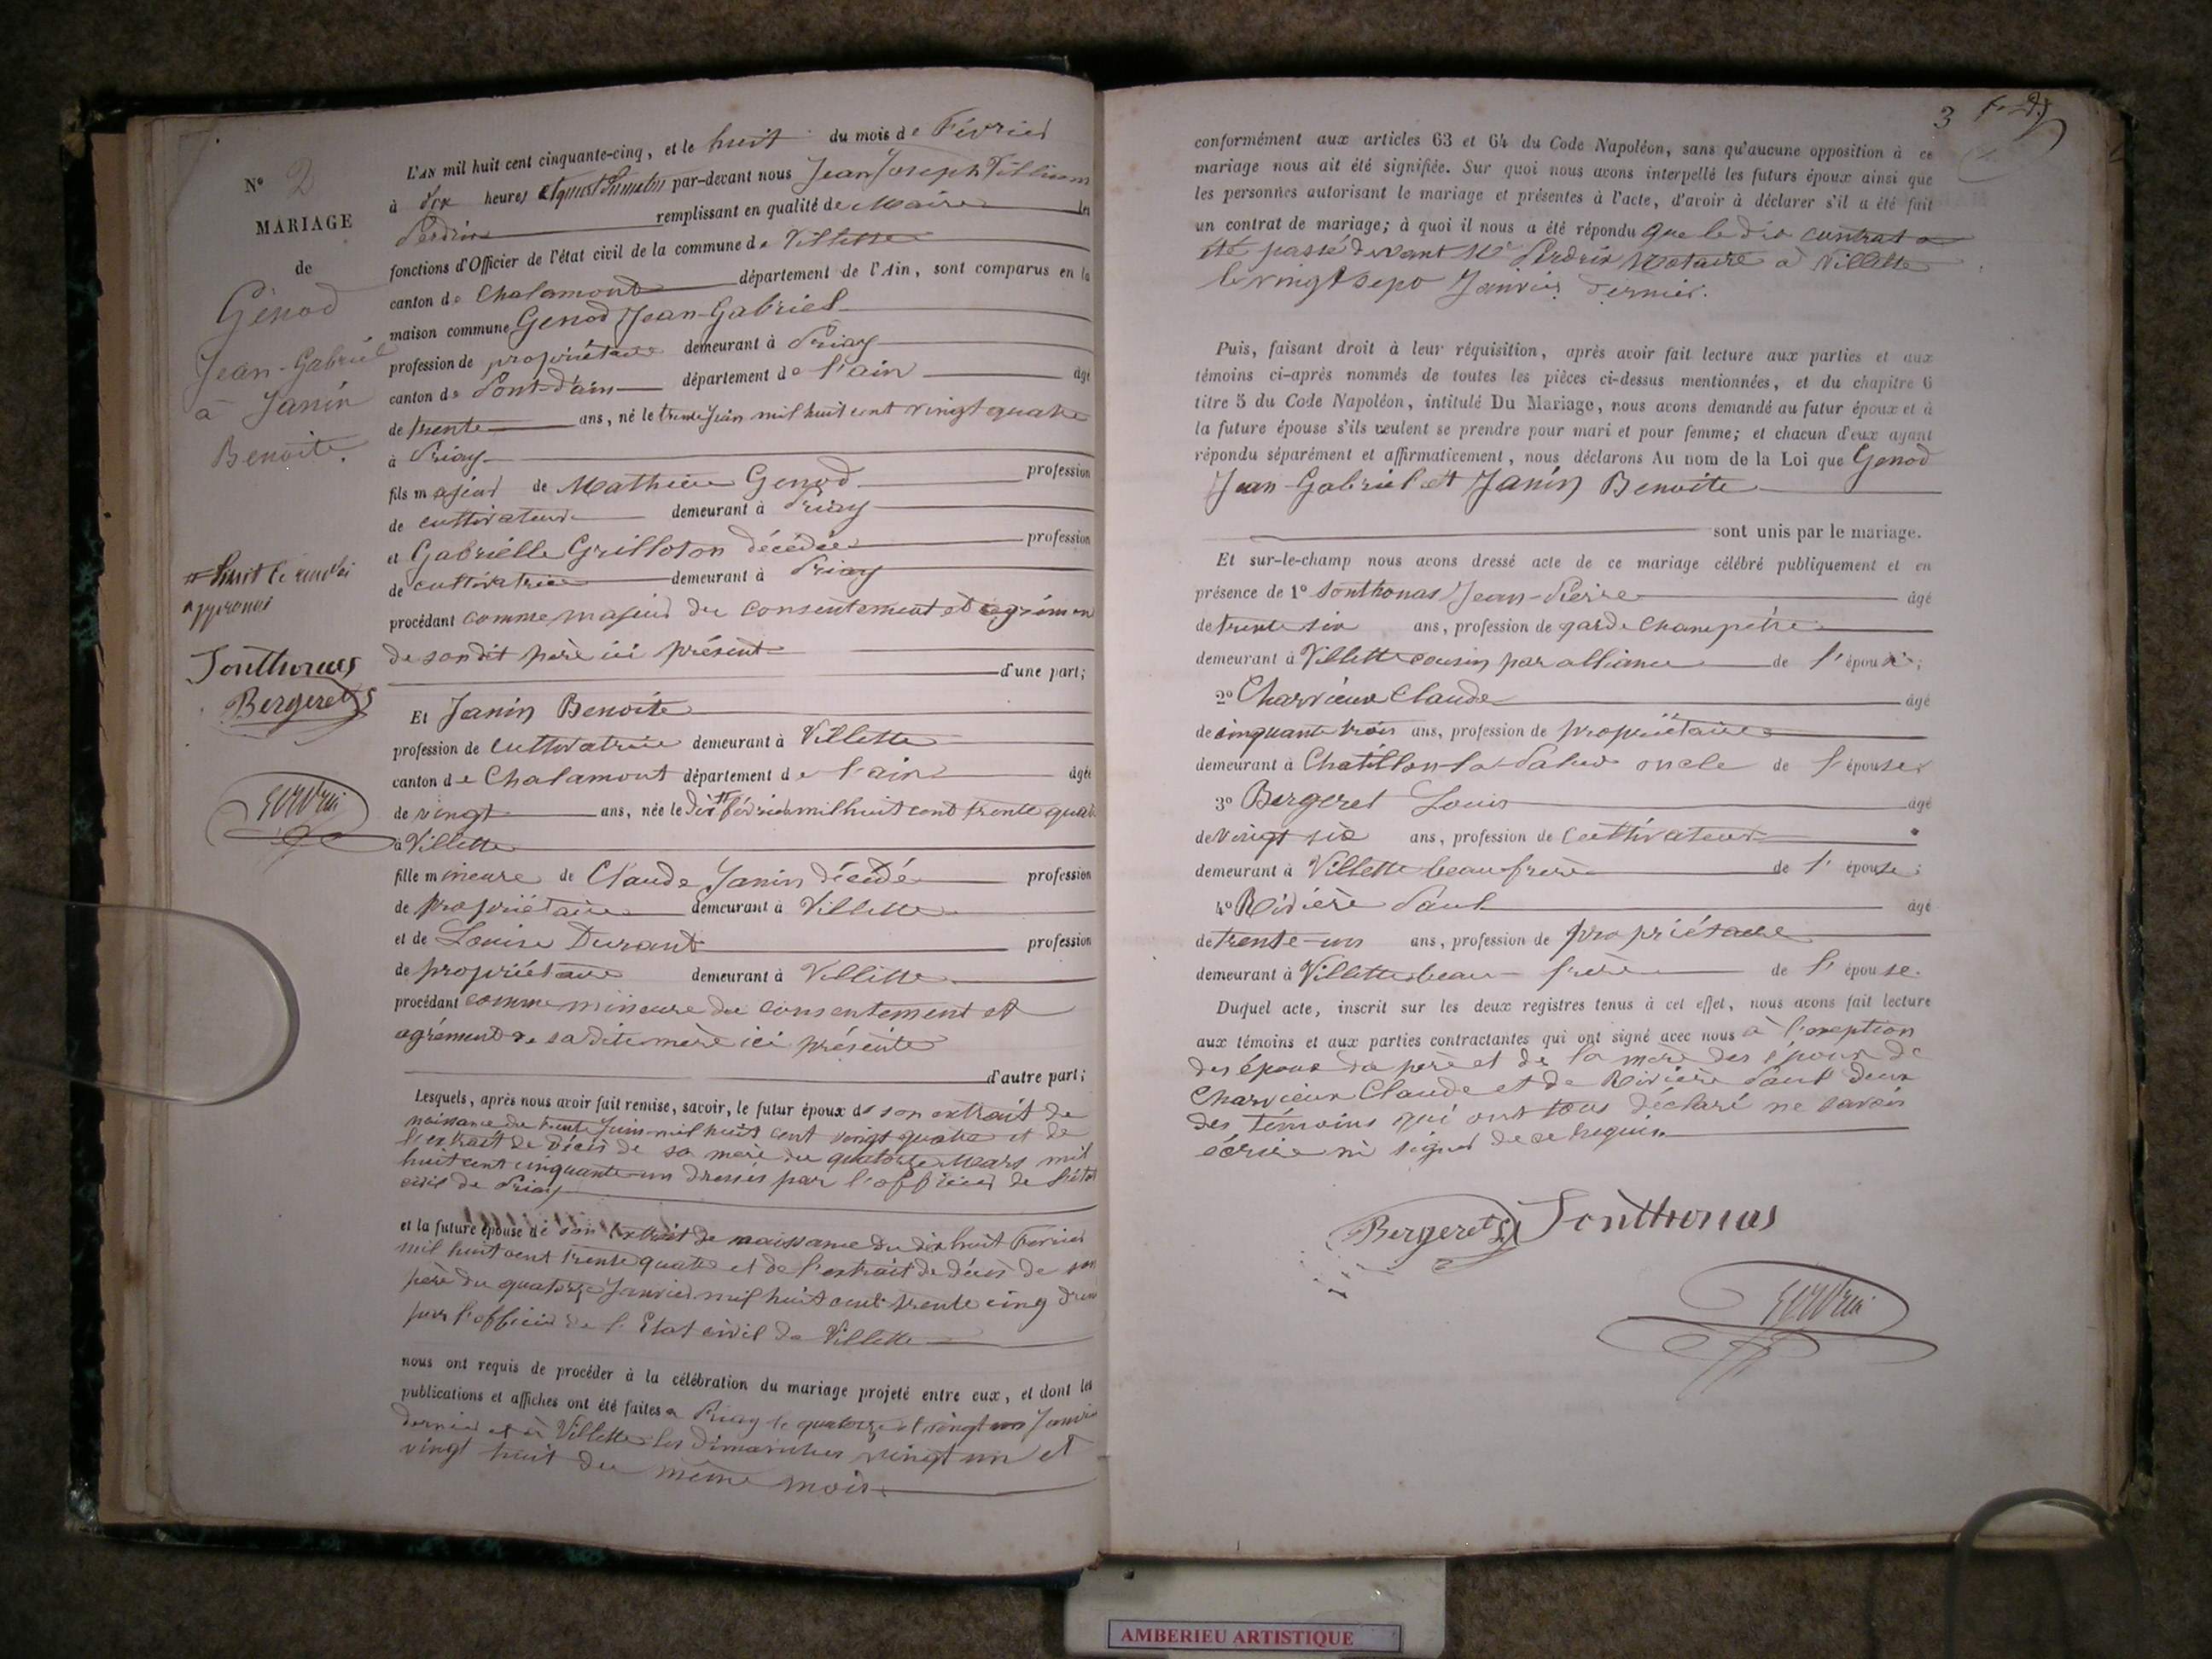 N° 2
MARIAGE
de
Génod
Jean-Gabriel
à Janin
Benoite.
# huit le renvoi
approuvé
Sonthonas
Bergeret
L'AN mil huit cent cinquante-cinq, et le huit du mois de Février
à dix heures du matin par-devant nous Jean Joseph
Perdrix remplissant en qualité de Maire les
fonctions d'Officier de l'état civil de la commune de Villette
canton de Chalamont département de l'Ain, sont comparus en la
maison commune Genod Jean-Gabriel
profession de propriétaire demeurant à Priay
canton de Pont-d'ain département de l'ain âgé
de trente ans, né le trente Juin mil huit cent vingt quatre
à Priay
fils majeur de Mathieu Genod profession
de cultivateur demeurant à Priay
et Gabrielle Grilloton décédée profession
de cultivatrice demeurant à Priay
procédant comme majeur du consentement et agrément
de son dit père ici présent
d'une part;
Et Janin Benoite
profession de cultivatrice demeurant à Villette
canton de Chalamont département de l'ain âgée
de vingt ans, née le dix # février mil huit cent trente quatre
à Villette
fille mineure de Claude Janin décédé profession
de propriétaire demeurant à Villette
et de Louise Durant profession
de propriétaire demeurant à Villette
procédant comme mineure du consentement et
agrément de sa dite mère ici présente
d'autre part;
Lesquels, après nous avoir fait remise, savoir, le futur époux de son extrait de
naissance du trente Juin mil huit cent vingt quatre et de
l'extrait de décès de sa mère du quatorze Mars mil
huit cent cinquante-un dressés par l'officier de l'état
civil de Priay
et la future épouse de son extrait de naissance du dix huit Février
mil huit cent trente quatre et de l'extrait de décès de son
père du quatorze Janvier mil huit cent trente cinq dressés
par l'officier de l'Etat civil de Villette
nous ont requis de procéder à la célébration du mariage projeté entre eux, et dont les
publications et affiches ont été faites à Priay le quatorze et vingt un Janvier
dernier et à Villette les dimanches vingt un et
vingt huit du même mois
3
conformément aux articles 63 et 64 du Code Napoléon, sans qu'aucune opposition à ce
mariage nous ait été signifiée. Sur quoi nous avons interpellé les futurs époux ainsi que
les personnes autorisant le mariage et présentes à l'acte, d'avoir à déclarer s'il a été fait
un contrat de mariage; à quoi il nous a été répondu que le dit contrat a
été passé devant Me Perdrix Notaire à Villette
le vingt sept Janvier dernier.
Puis, faisant droit à leur réquisition, après avoir fait lecture aux parties et aux
témoins ci-après nommés de toutes les pièces ci-dessus mentionnées, et du chapitre 6
titre 5 du Code Napoléon, intitulé Du Mariage, nous avons demandé au futur époux et à
la future épouse s'ils veulent se prendre pour mari et pour femme; et chacun d'eux ayant
répondu séparément et affirmativement, nous déclarons Au nom de la Loi que Genod
Jean-Gabriel et Janin Benoite
sont unis par le mariage.
Et sur-le-champ nous avons dressé acte de ce mariage célébré publiquement et en
présence de 1° Sonthonas Jean-Pierre âgé
de trente six ans, profession de garde champêtre
demeurant à Villette cousin par alliance de l'époux;
2° Charvieux Claude âgé
de cinquante trois ans, profession de propriétaire
demeurant à Chatillon-la-Palud oncle de l'épouse
3° Bergeret Louis âgé
de vingt six ans, profession de cultivateur
demeurant à Villette beau frère de l'épouse;
4° Rivière Paul âgé
de trente-un ans, profession de propriétaire
demeurant à Villette beau-frère de l'épouse.
Duquel acte, inscrit sur les deux registres tenus à cet effet, nous avons fait lecture
aux témoins et aux parties contractantes qui ont signé avec nous à l'exeption
des époux du père et de la mère des époux de
Charvieux Claude et de Rivière Paul deux
des témoins qui ont tous déclaré ne savoir
écrire ni signer de ce requis.
Bergeret L Sonthonas
AMBERIEU ARTISTIQUE